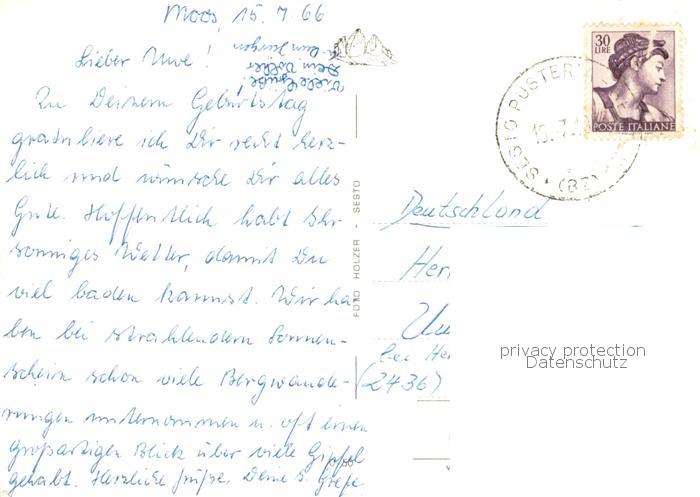 Moos, 15.7.66
Lieber Uwe!
Zu Deinem Geburtstag
gratuliere ich Dir recht herz-
lich und wünsche Dir alles
Gute. Hoffentlich habt Ihr
sonniges Wetter, damit Du
viel baden kannst. Wir ha-
ben bei strahlendem Sonnen-
schein schon viele Bergwande-
rungen unternommen u. oft einen
großartigen Blick über viele Gipfel
gehabt. Herzliche Grüße, Deine
Viele Grüße!
Dein
FOTO HOLZER - SESTO
30
LIRE
POSTE ITALIANE
SESTO PUSTER
(BZ)
Deutschland
Her
bei He
(2436)
privacy protection
Datenschutz